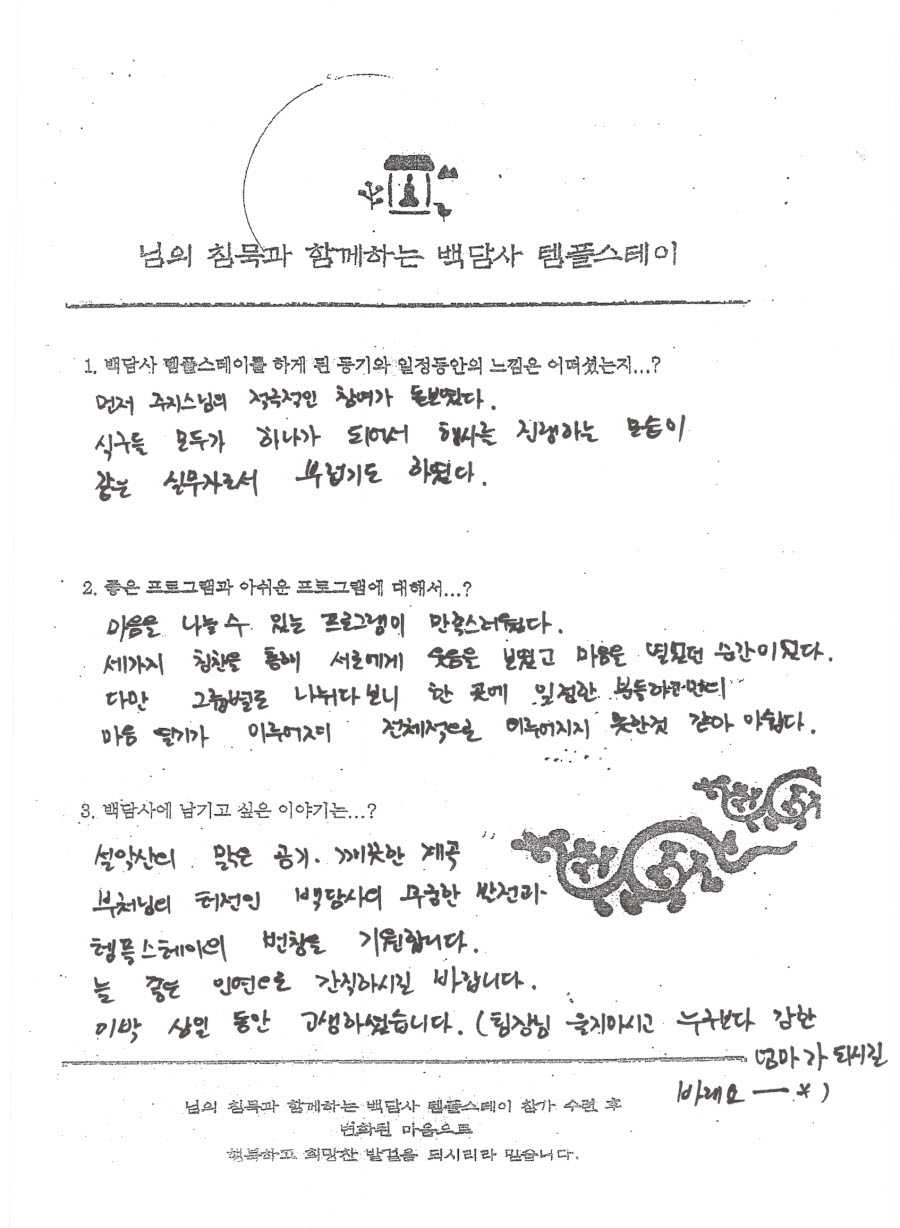 님의 침묵과 함께하는 백담사 템플스테이
1. 백담사 템플스테이를 하게 된 동기와 일정동안의 느낌은 어떠셨는지...?
먼저 주지스님의 적극적인 참여가 돋보였다.
식구들 모두가 하나가 되어서 행사를 진행하는 모습이
같은 실무자로서 부럽기도 하였다.
2. 좋은 프로그램과 아쉬운 프로그램에 대해서...?
마음을 나눌 수 있는 프로그램이 만족스러웠다.
세가지 칭찬을 통해 서로에게 웃음을 보였고 마음을 열었던 순간이였다.
다만 그룹별로 나뉘다 보니 한 곳에 밀접한 분들하고만의
마음 열기가 이루어지며 전체적으로 이루어지지 못한것 같아 아쉽다.
3. 백담사에 남기고 싶은 이야기는...?
설악산의 맑은 공기. 깨끗한 계곡
부처님의 터전인 백담사의 무궁한 발전과
템플스테이의 번창을 기원합니다.
늘 좋은 인연으로 간직하시길 바랍니다.
이박 삼일 동안 고생하셨습니다. (팀장님 울지마시고 누구보다 강한
엄마가 되시길
바래요 ―*)
님의 침묵과 함께하는 백담사 템플스테이 참가 수련 후
변화된 마음으로
행복하고 희망찬 발걸음 되시리라 믿습니다.